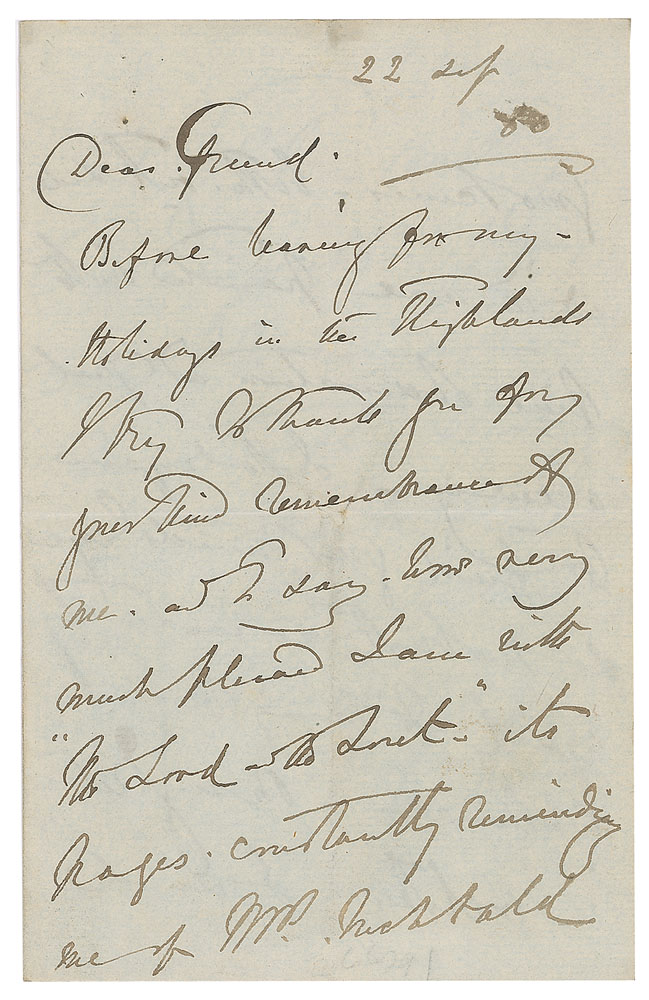 22 Sep
80
Dear friend.
Before leaving for my -
Holidays in the Highlands
I try to thank you for
your kind remembrance of
me. and to say. how very
much pleased I am with
"The Lord and the " its
pages. constantly reminding
me of Mrs. Inchbald